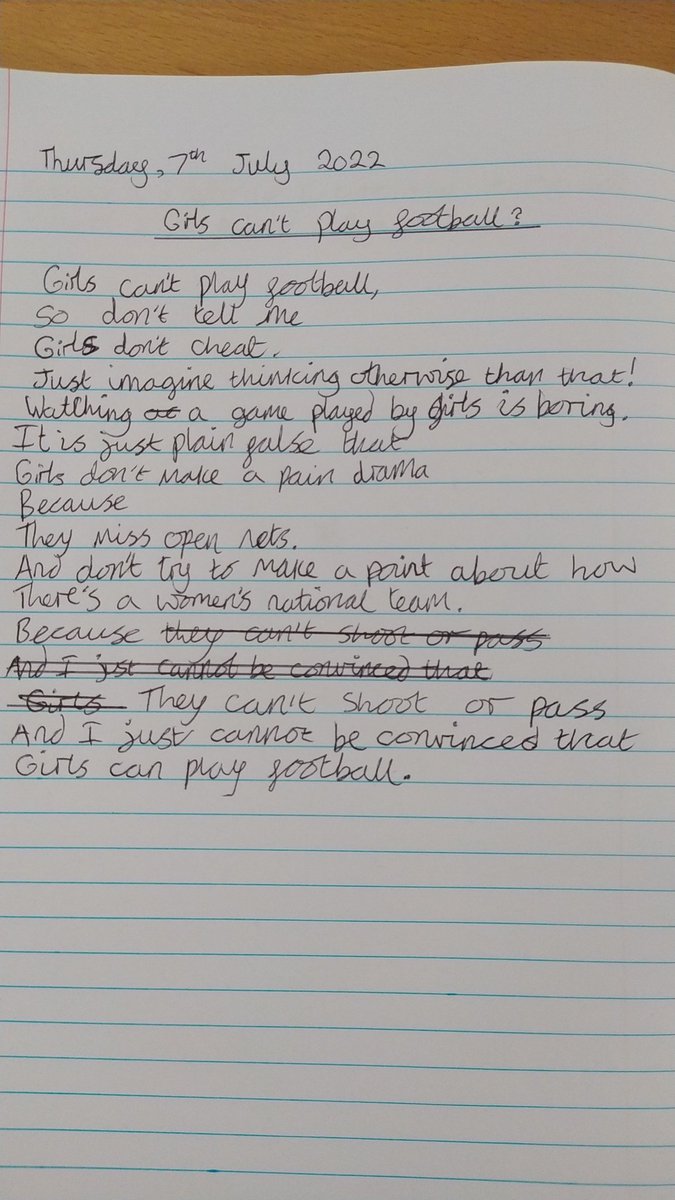 Thursday, 7th July 2022
Girls can't play football?
Girls can't play football,
So don't tell me
Girls don't cheat.
Just imagine thinking otherwise than that!
Watching a game played by girls is boring.
It is just plain false that
Girls don't make a pain drama
Because
They miss open nets.
And don't try to make a point about how
There's a women's national team.
Because they can't shoot or pass
And I just cannot be convinced that
Girls They can't shoot or pass
And I just cannot be convinced that
Girls can play football.